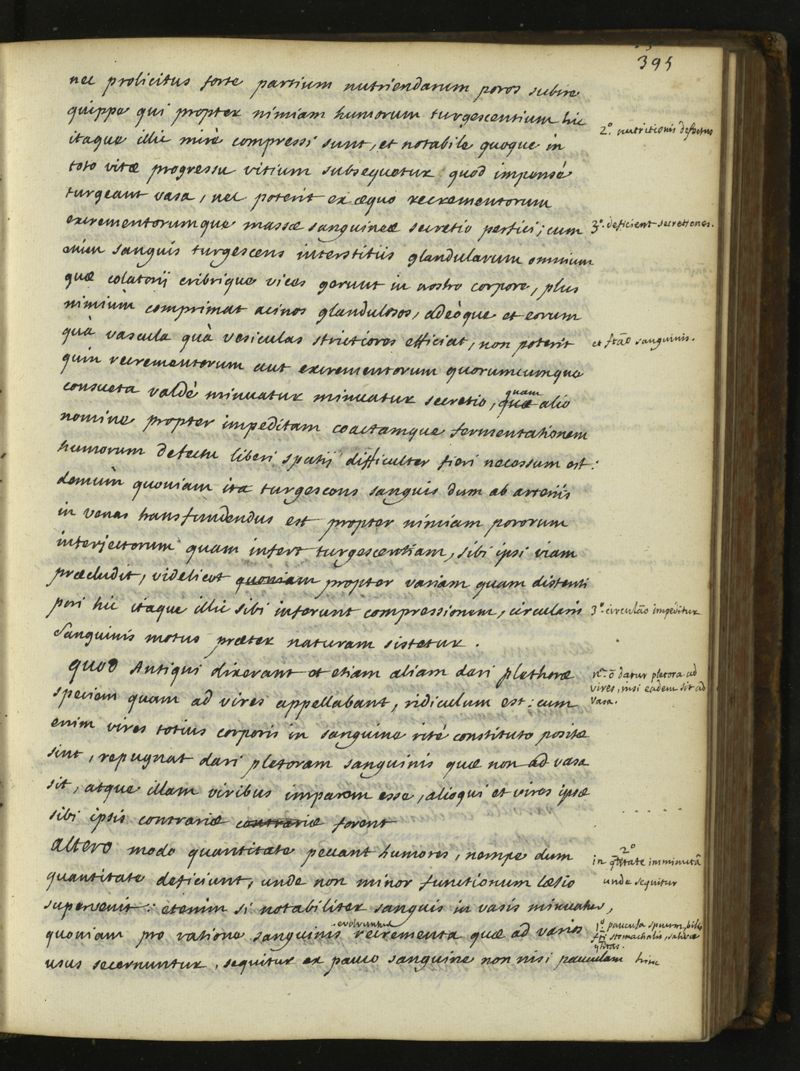 395
nec prolicitus forte partium nutriendarum poros subire
quippe qui propter nimiam humorum turgescentium hic
2º. nutritionis defectus
itaque illic mirè compressi sunt, et notabile quoque in
toto vitæ progressu vitium subsequetur quod impensè
turgeant vasa, nec poterit ex æquo recrementorum
excrementorumque massæ sanguineæ secretio perfici; cum
3º. deficient secretiones.
enim sanguis turgescens interstitiis glandularum omnium
quæ colatorij cribrique vices gerunt in nostro corpore, plus
nimiùm comprimat acinos glandulosos, adeòque et eorum
quà vascula quà vesiculas strictiores efficiat, non poterit
et ftāō sanguinis.
quin recrementorum aut excrementorum quorumcumque
consueta valdè minuatur minuatur secretio, quæ quam alio
nomine propter impeditam coactamque fermentationem
humorum defectu liberi spatij difficulter fieri necessum est:
demùm quoniam ita turgescens sanguis dum ab arteriis
in venas transfundendus est propter nimiam pororum
interjectorum quam infert turgescentiam, sibi ipsi viam
præcludit, videlicet quoniam propter variam quam distenti
pori hic itaque illic sibi inferunt compressionem, circularis
3º. circulāō impeditur
sanguinis motus præter naturam sistetur.
quod Antiqui dixerant et etiam aliam dari plethoræ
speciem quam ad vires appellabant, ridiculum est: cum
ō datur pletora ad
vires, nisi eadem sit ad
vasa.
enim vires totius corporis in sanguine ritè constituto positæ
sint, repugnat dari pletoram sanguinis quæ non ad vasa
sit, atque illam viribus imparem esse, alioqui et vires ipsæ
sibi ipsis contrariæ contrariæ forent
altero modo quantitate peccant humores, nempe dum
2º
in qtitate imminutâ
quantitate deficiunt, unde non minor functionum læsio
unde sequitur
supervenit: etenim si notabiliter sanguis in vasis minuatur,
quoniam pro ratione sanguinis evolvuntur recrementa quæ ad varios
1º. paucula spirituum, bilis
stomachalis, salivæ
usus secernuntur, sequitur ex pauco sanguine non nisi pauculam hinc